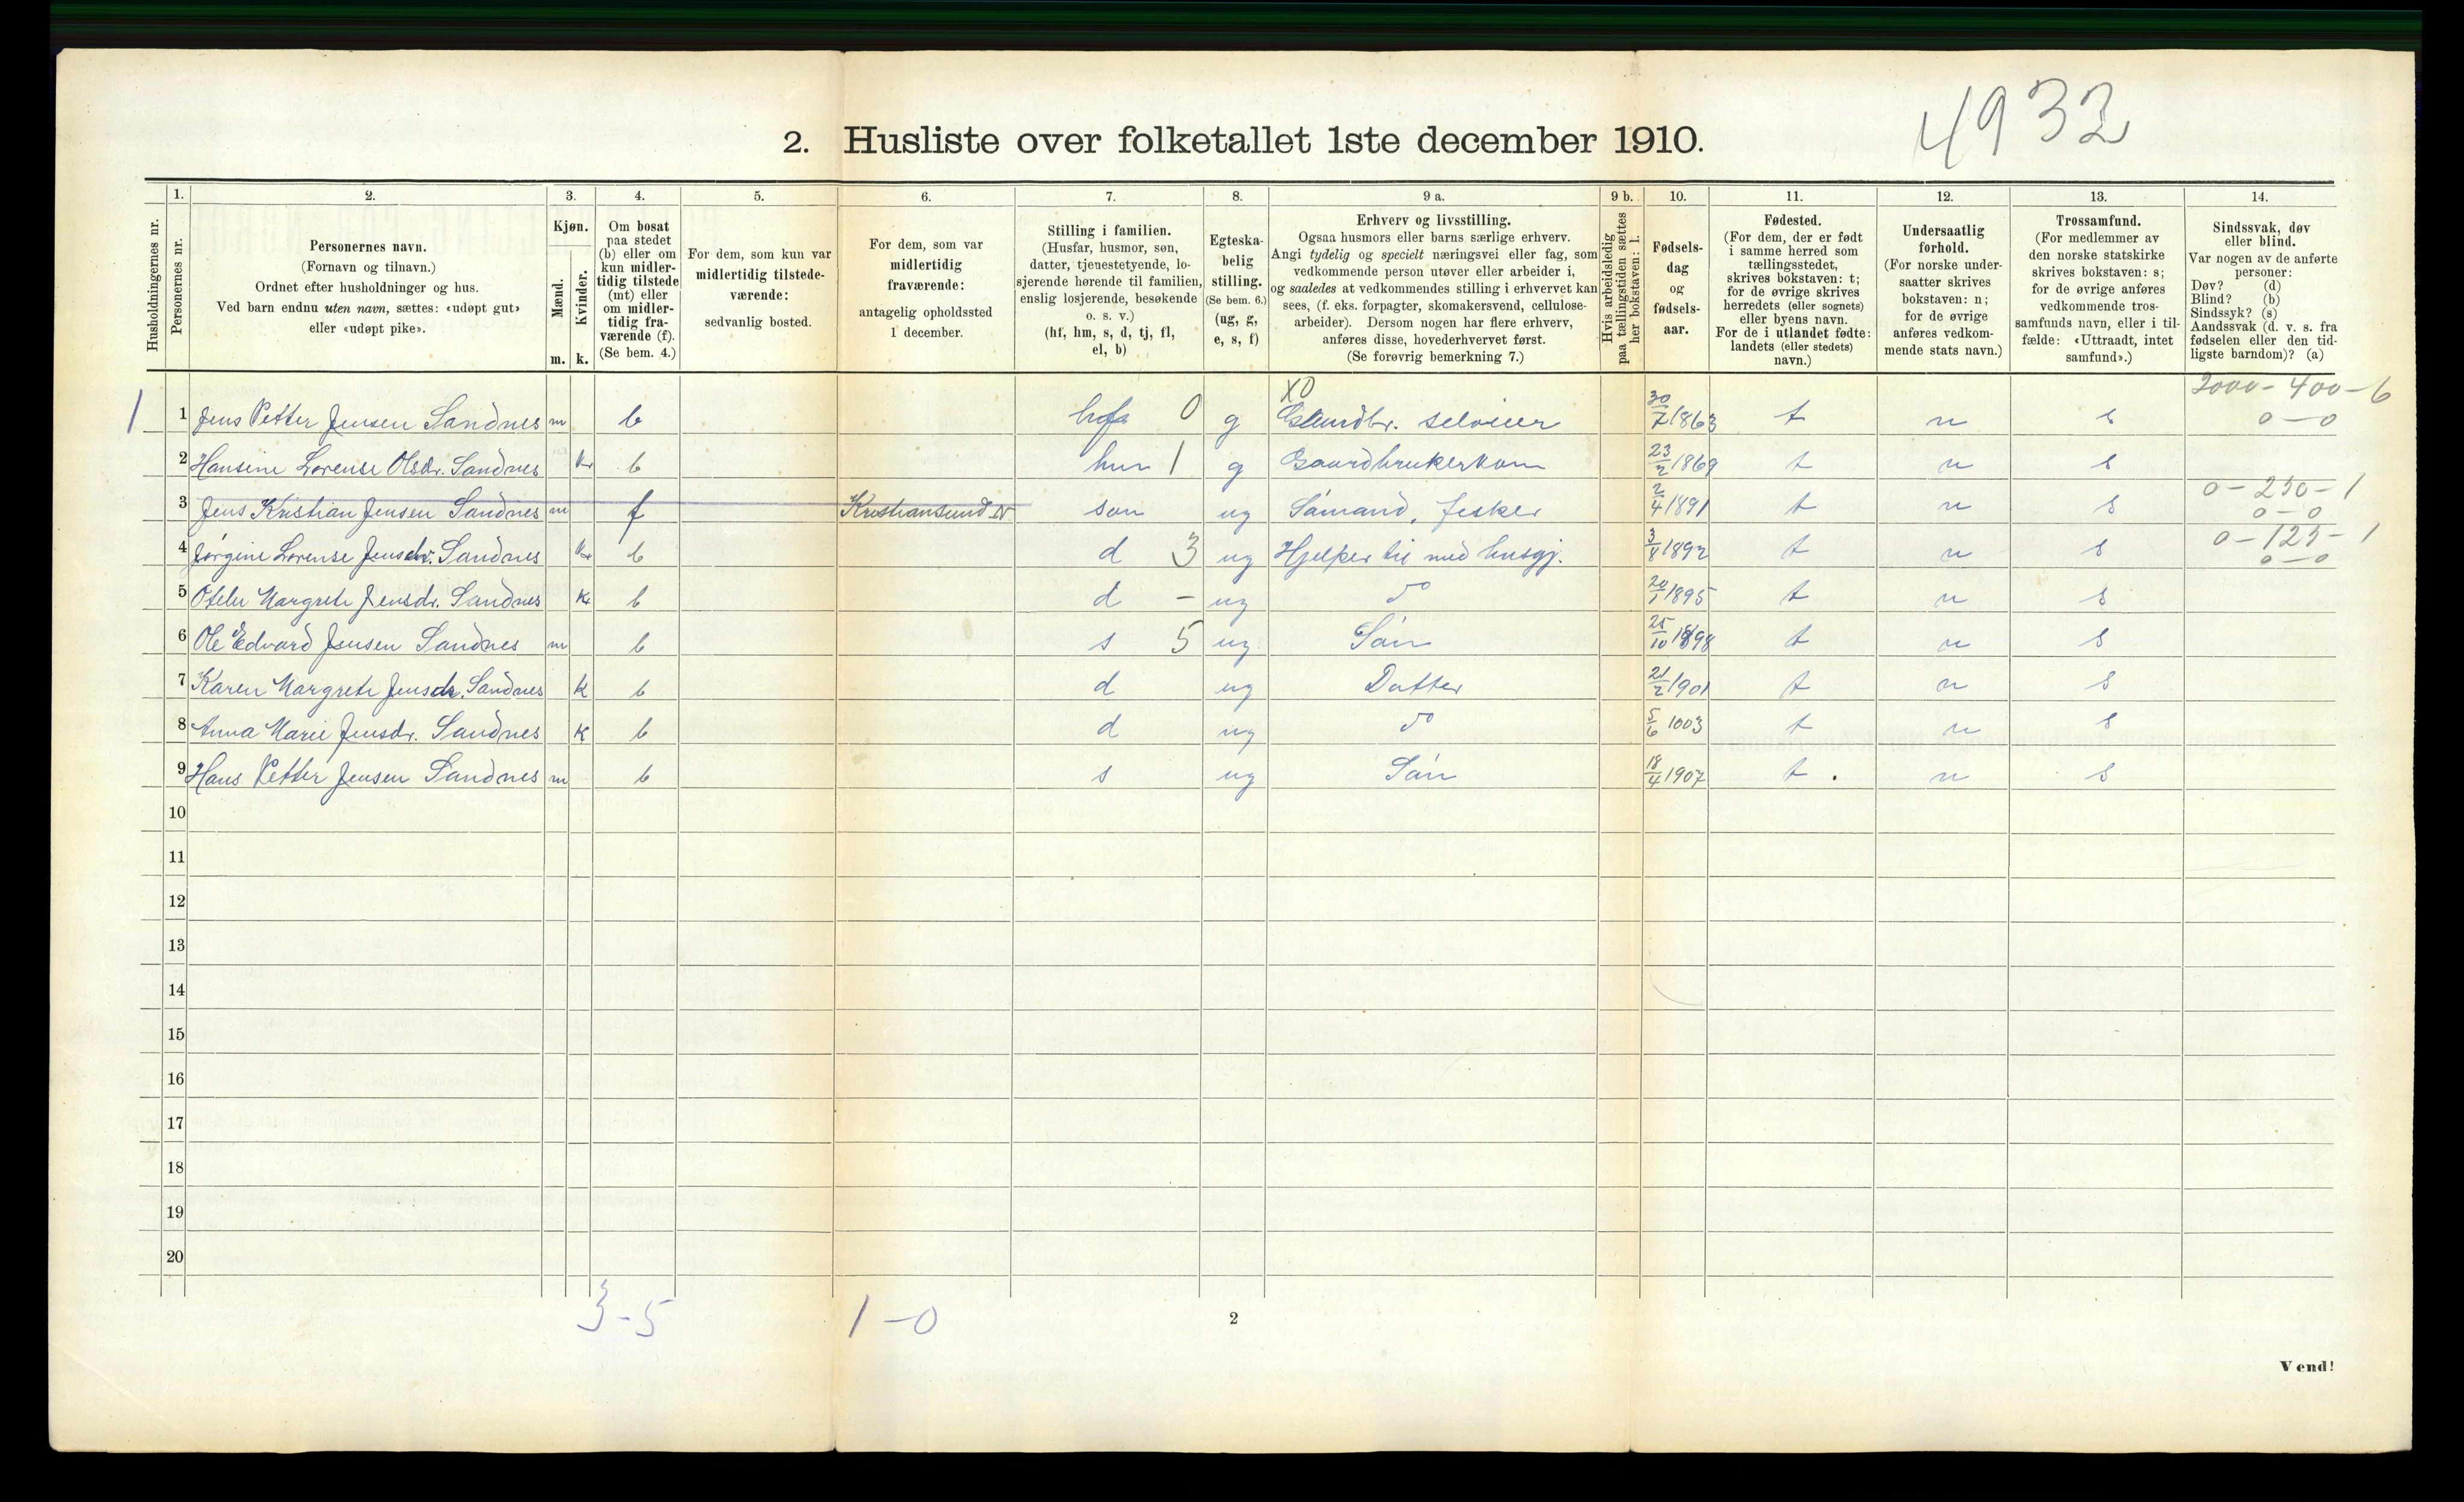 4932
2. Husliste over folketallet 1ste december 1910.
Husholdningernes nr.
1.
Personernes nr.
2.
Personernes navn.
(Fornavn og tilnavn.)
Ordnet efter husholdninger og hus.
Ved barn endnu uten navn, sættes: «udøpt gut»
eller «udøpt pike».
3.
Kjøn.
Mænd.
m.
Kvinder.
k.
4.
Om bosat
paa stedet
(b) eller om
kun midler-
tidig tilstede
(mt) eller
om midler-
tidig fra-
værende (f).
(Se bem. 4.)
5.
For dem, som kun var
midlertidig tilstede-
værende:
sedvanlig bosted.
6.
For dem, som var
midlertidig
fraværende:
antagelig opholdssted
1 december.
7.
Stilling i familien.
(Husfar, husmor, søn,
datter, tjenestetyende, lo-
sjerende hørende til familien,
enslig losjerende, besøkende
o. s. v.)
(hf, hm, s, d, tj, fl,
el, b)
8.
Egteska-
belig
stilling.
(Se bem. 6.)
(ug, g,
e, s, f)
9 a.
Erhverv og livsstilling.
Ogsaa husmors eller barns særlige erhverv.
Angi tydelig og specielt næringsvei eller fag, som
vedkommende person utøver eller arbeider i,
og saaledes at vedkommendes stilling i erhvervet kan
sees, (f. eks. forpagter, skomakersvend, cellulose-
arbeider). Dersom nogen har flere erhverv,
anføres disse, hovederhvervet først.
(Se forøvrig bemerkning 7.)
9 b.
Hvis arbeidsledig
paa tællingstiden sættes
her bokstaven: l.
10.
Fødsels-
dag
og
fødsels-
aar.
11.
Fødested.
(For dem, der er født
i samme herred som
tællingsstedet,
skrives bokstaven: t;
for de øvrige skrives
herredets (eller sognets)
eller byens navn.
For de i utlandet fødte:
landets (eller stedets)
navn.)
12.
Undersaatlig
forhold.
(For norske under-
saatter skrives
bokstaven: n;
for de øvrige
anføres vedkom-
mende stats navn.)
13.
Trossamfund.
(For medlemmer av
den norske statskirke
skrives bokstaven: s;
for de øvrige anføres
vedkommende tros-
samfunds navn, eller i til-
fælde: «Uttraadt, intet
samfund».)
14.
Sindssvak, døv
eller blind.
Var nogen av de anførte
personer:
Døv? (d)
Blind? (b)
Sindssyk? (s)
Aandssvak (d. v. s. fra
fødselen eller den tid-
ligste barndom)? (a)
X0 2000-400-6
1 1 Jens Petter Jensen Sandnes m b hf 0 g Gaardbr. selveier 30/7 1863 t n s 0-0
2 Hansine Lorense Olsdr. Sandnes k b hm 1 g Gaardbrukerkone 23/2 1869 t n s
0-250-1
3 Jens Kristian Jensen Sandnes m f Kristiansund N søn ug Sømand, fisker 2/4 1891 t n s 0-0
0-125-1
4 Jørgine Lorense Jensdr. Sandnes k b d 3 ug Hjelper til med husgj. 3/8 1892 t n s 0-0
5 Margrete Jensdr. Sandnes k b d - ug do 20/1 1895 t n s
6 Ole Edvard Jensen Sandnes m b s 5 ug Søn 25/10 1898 t n s
7 Karen Margrete Jensdr. Sandnes k b d ug Datter 21/2 1901 t n s
8 Anna Marie Jensdr. Sandnes k b d ug do 5/6 1003 t n s
9 Hans Petter Jensen Sandnes m b s ug Søn 18/4 1907 t . n s
10
11
12
13
14
15
16
17
18
19
20
3-5 1-0
2
Vend!